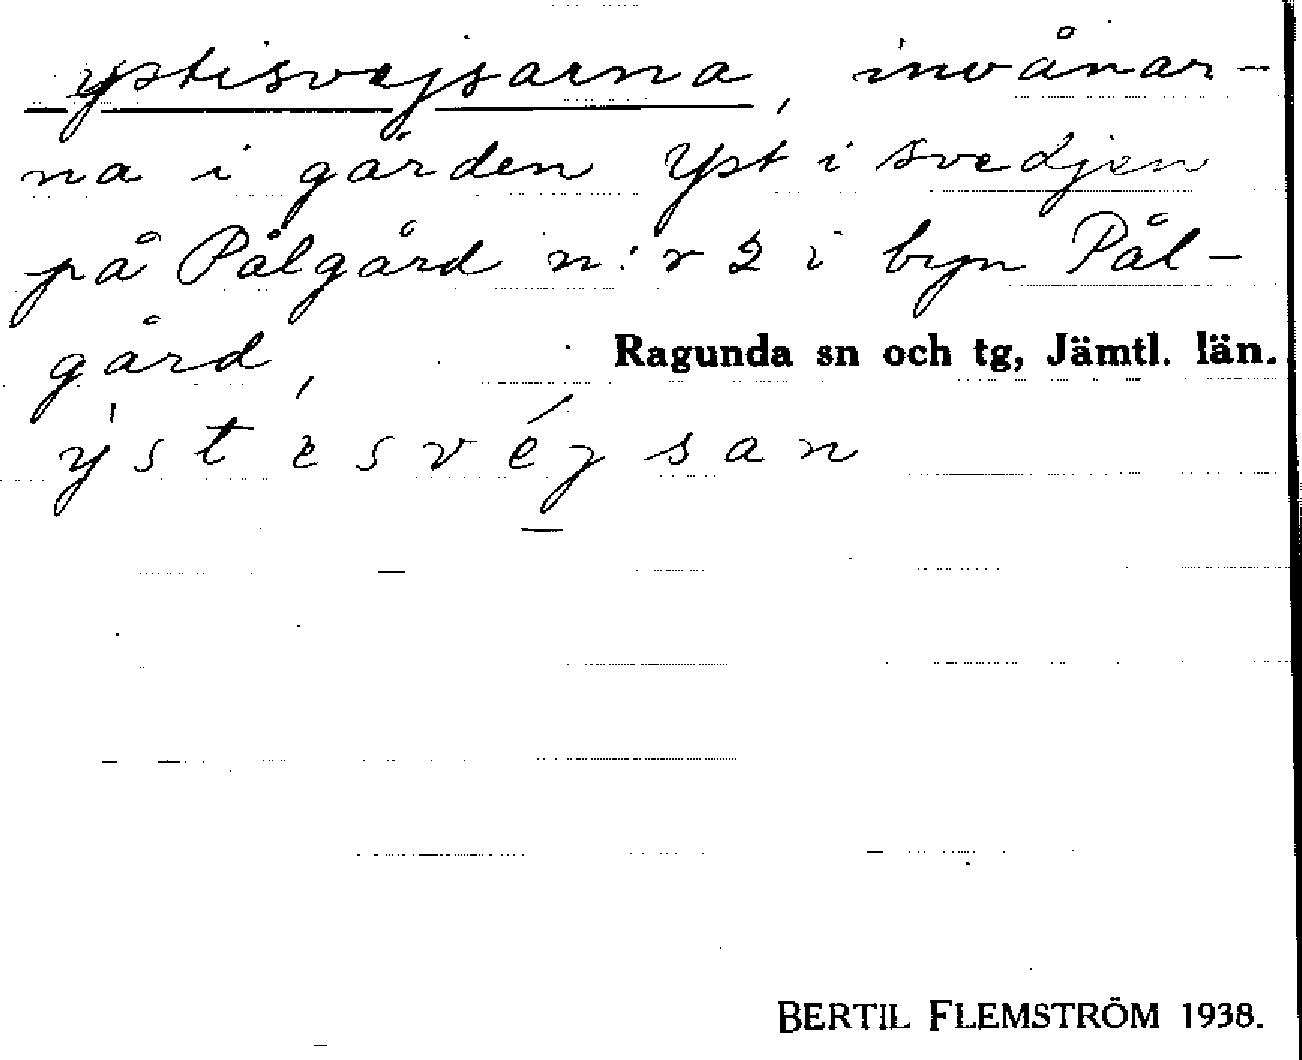 ystisvejsarna, invånar-
na i gården Yst i svedjen
på Pålgård n:r 2 i byn Pål-
gård, Ragunda sn och tg, Jämtl. län.
ýstesvéjsan
BERTIL FLEMSTRÖM 1938.